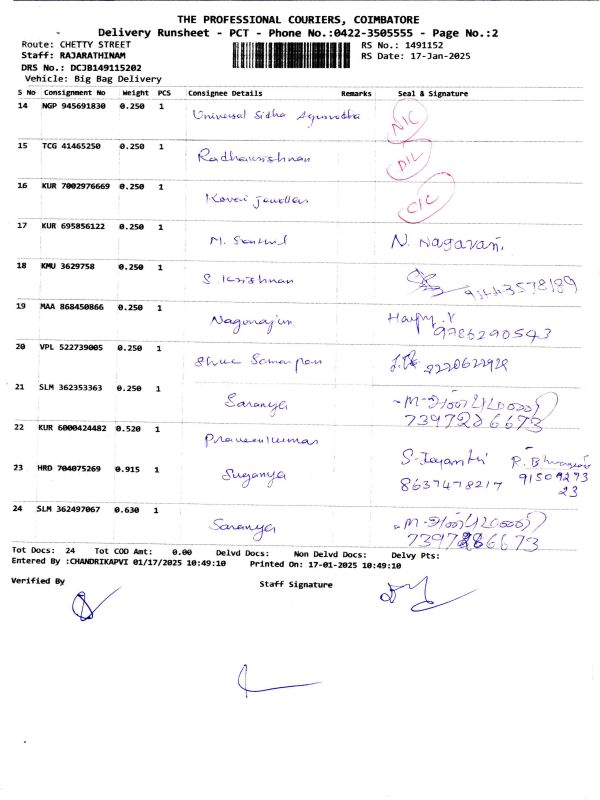 THE PROFESSIONAL COURIERS, COIMBATORE
Delivery Runsheet - PCT - Phone No.:0422-3505555 - Page No.:2
Route: CHETTY STREET RS No.: 1491152
Staff: RAJARATHINAM RS Date: 17-Jan-2025
DRS No.: DCJB149115202
Vehicle: Big Bag Delivery
S No Consignment No Weight PCS Consignee Details Remarks Seal & Signature
14 NGP 945691830 0.250 1 Universal Sidha NIC
15 TCG 41465250 0.250 1 Radhakrishnan DIL
16 KUR 7002976669 0.250 1 Kovai Jewellers CIC
17 KUR 695856122 0.250 1 M. Senthil N. Nagavani.
18 KMU 3629758 0.250 1 S Krishnan
19 MAA 868450866 0.250 1 Nagarajun 9786290543
20 VPL 522739005 0.250 1 Shree 8220622928
21 SLM 362353363 0.250 1 Saranya 7397286673
22 KUR 6000424482 0.520 1 Praveenkumar
23 HRD 704075269 0.915 1 Suganya S. Jayanthi 8637478217 R. 9150927323
24 SLM 362497067 0.630 1 Saranya 7397286673
Tot Docs: 24 Tot COD Amt: 0.00 Delvd Docs: Non Delvd Docs: Delvy Pts:
Entered By :CHANDRIKAPVI 01/17/2025 10:49:10 Printed On: 17-01-2025 10:49:10
Verified By Staff Signature